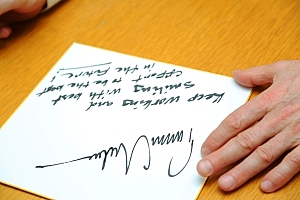 Keep working and
Smiling with best
effort to be the best
in the future!